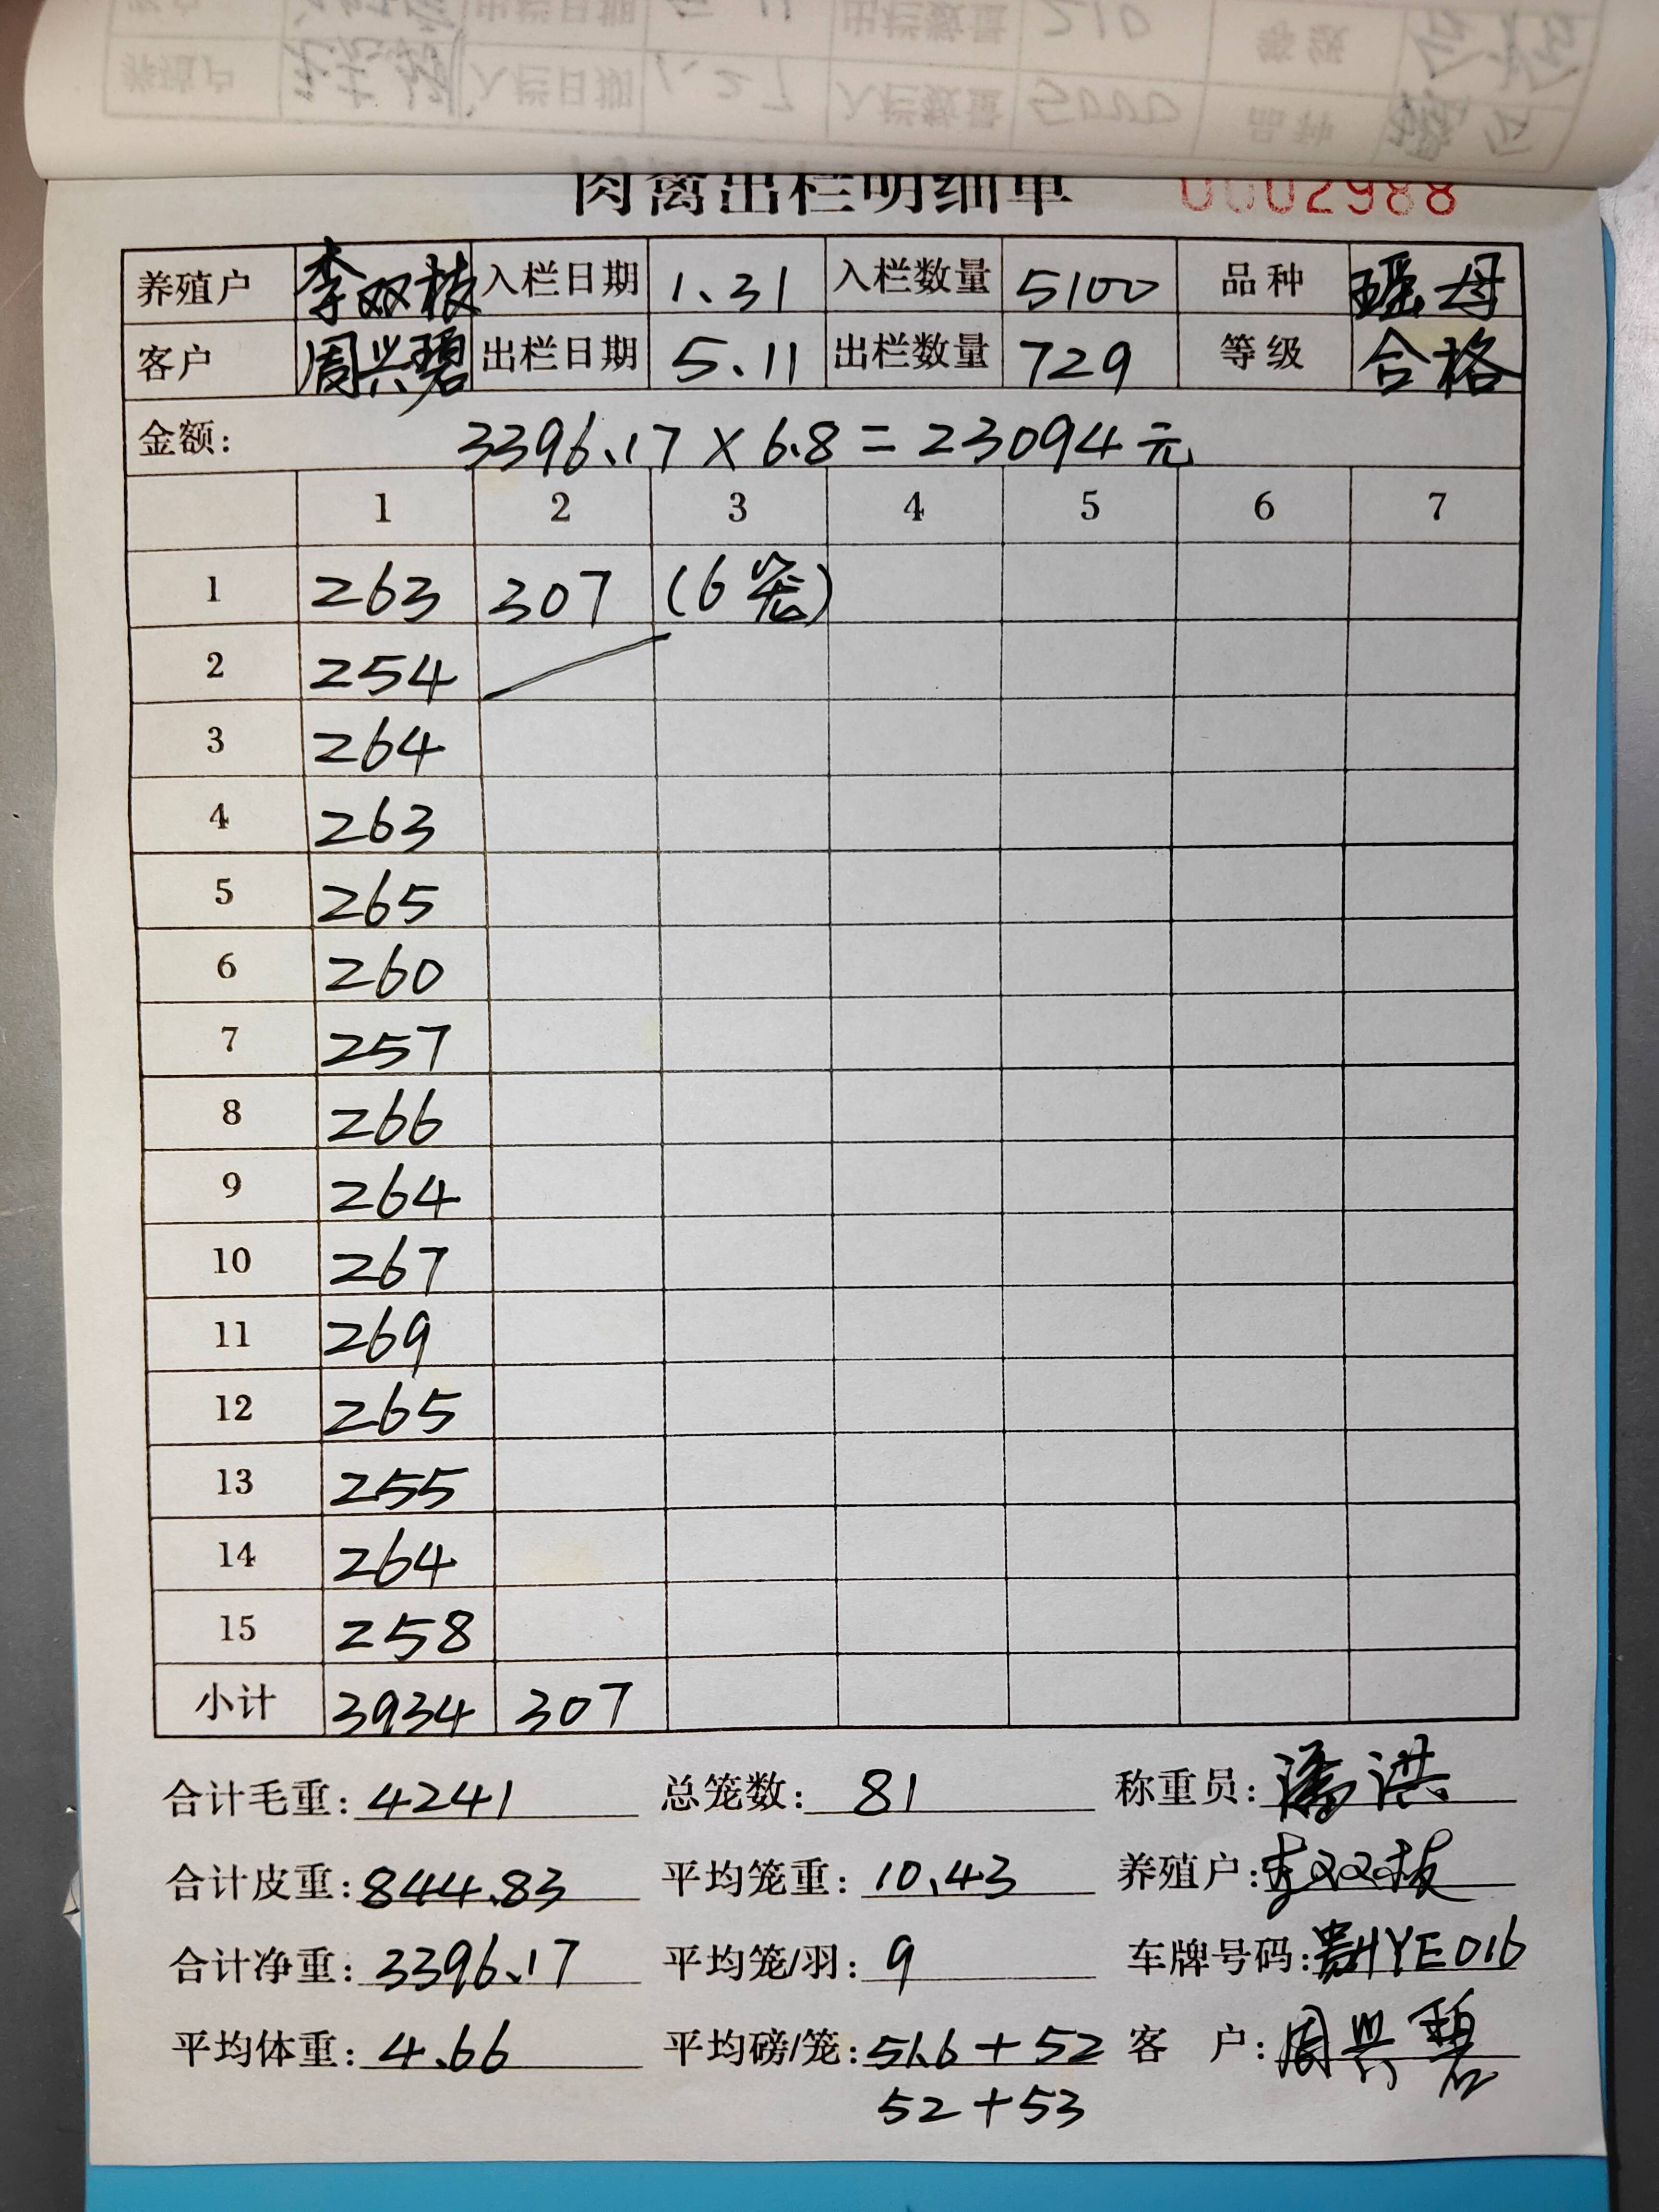 肉禽出栏明细单 0002988
养殖户 李双枝 入栏日期 1.31 入栏数量 5100 品种 瑶母
客户 周兴碧 出栏日期 5.11 出栏数量 729 等级 合格
金额: 3396.17 × 6.8 = 23094元
1 2 3 4 5 6 7
1 263 307 (6笼)
2 254
3 264
4 263
5 265
6 260
7 257
8 266
9 264
10 267
11 269
12 265
13 255
14 264
15 258
小计 3934 307
合计毛重: 4241 总笼数: 81 称重员: 潘洪
合计皮重: 844.83 平均笼重: 10.43 养殖户: 李双枝
合计净重: 3396.17 平均笼/羽: 9 车牌号码: 贵HYE016
平均体重: 4.66 平均磅/笼: 51.6+52 客户: 周兴碧
52+53